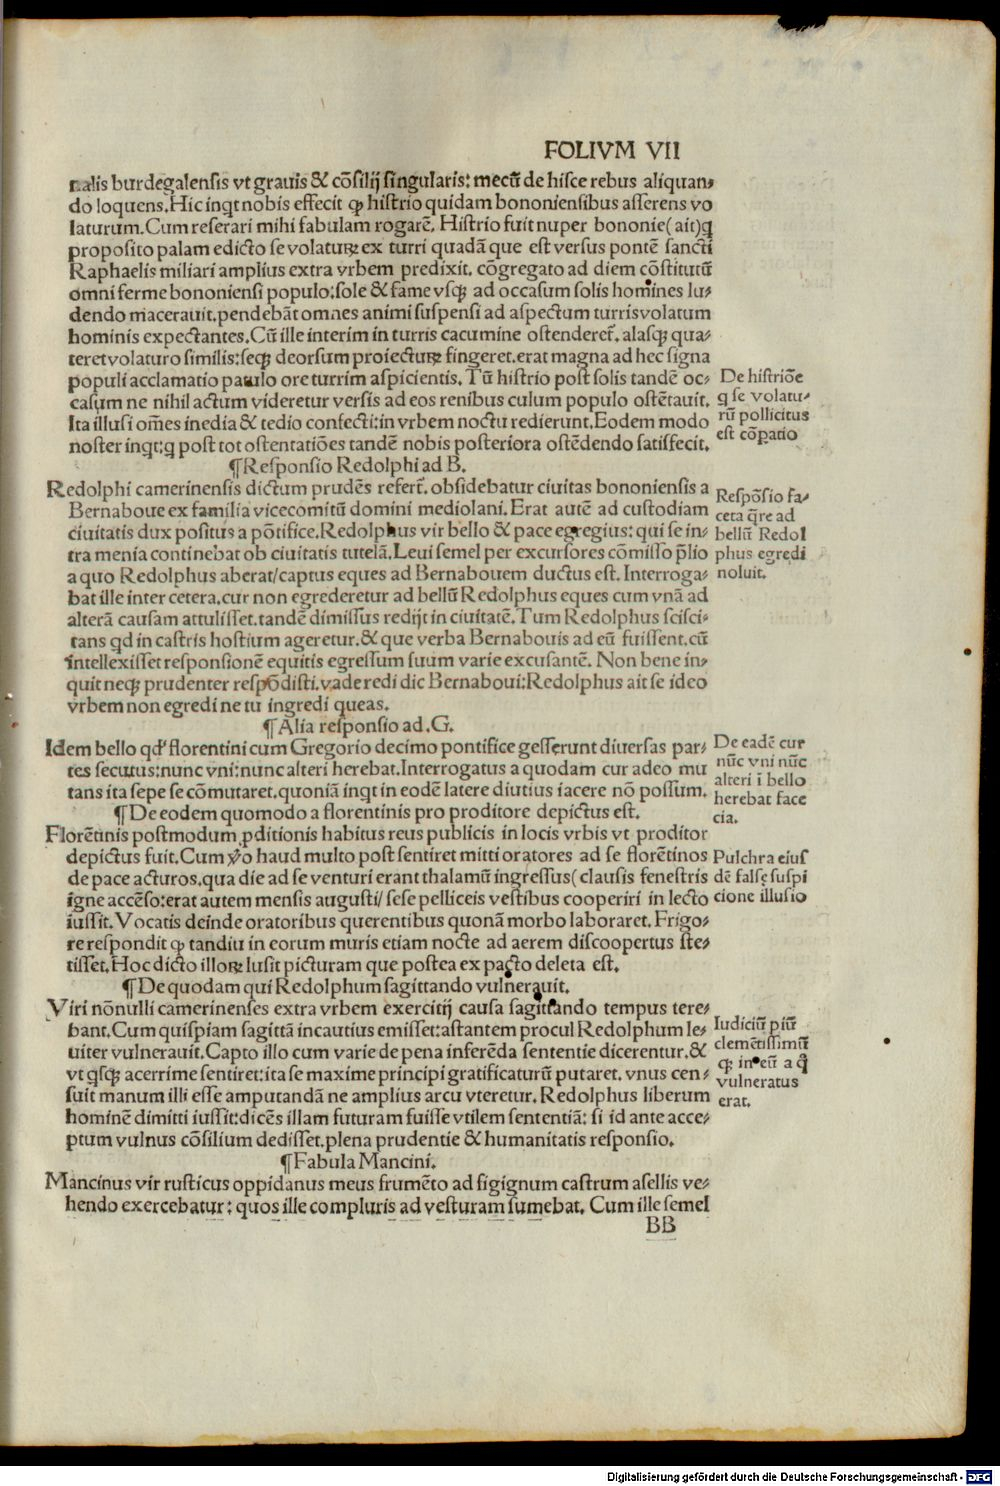 FOLIVM VII
nalis burdegalensis vt grauis & cōsilij singularis: mecū de hisce rebus aliquan⸗
do loquens. Hic inqt nobis effecit ꝙ histrio quidam bononiensibus asserens vo
laturum. Cum reserari mihi fabulam rogarē. Histrio fuit nuper bononie( ait)q
proposito palam edicto se volaturꝝ ex turri quadā que est versus pontē sancti
Raphaelis miliari amplius extra vrbem predixit. cōgregato ad diem cōstitutū
omni ferme bononiensi populo: sole & fame vsqꝫ ad occasum solis homines lu⸗
dendo macerauit. pendebāt omnes animi suspensi ad aspectum turris volatum
hominis expectantes. Cū ille interim in turris cacumine ostenderet᷑. alasqꝫ qua⸗
teret volaturo similis: seqꝫ deorsum proiecturꝝ fingeret. erat magna ad hec signa
populi acclamatio paulo ore turrim aspicientis. Tū histrio post solis tandē oc⸗
casum ne nihil actum videretur versis ad eos renibus culum populo ostētauit.
Ita illusi om̄es inedia & tedio confecti: in vrbem noctu redierunt. Eodem modo
noster inqt: q post tot ostentatiōes tandē nobis posteriora ostēdendo satisfecit.
De histriōe
q se volatu⸗
rū pollicitus
est cōpatio
¶Responsio Redolphi ad B.
Redolphi camerinensis dictum prudēs refert᷑. obsidebatur ciuitas bononiensis a
Bernaboue ex familia vicecomitū domini mediolani. Erat autē ad custodiam
ciuitatis dux positus a pōtifice. Redolphus vir bello & pace egregius: qui se in⸗
tra menia continebat ob ciuitatis tutelā. Leui semel per excursores cōmisso p̄lio
a quo Redolphus aberat/captus eques ad Bernabouem ductus est. Interroga⸗
bat ille inter cetera. cur non egrederetur ad bellū Redolphus eques cum vnā ad
alterā causam attulisset. tandē dimissus redijt in ciuitatē. Tum Redolphus scisci⸗
tans qd in castris hostium ageretur. & que verba Bernabouis ad eū fuissent. cū
intellexisset responsionē equitis egressum suum varie excusantē. Non bene in⸗
quit neqꝫ prudenter respōdisti. vade redi dic Bernaboui: Redolphus ait se ideo
vrbem non egredi ne tu ingredi queas.
Respōsio fa⸗
ceta qre ad
bellū Redol
phus egredi
noluit.
¶Alia responsio ad. G.
Idem bello qd' florentini cum Gregorio decimo pontifice gesserunt diuersas par⸗
tes secutus: nunc vni: nunc alteri herebat. Interrogatus a quodam cur adeo mu
tans ita sepe se cōmutaret. quoniā inqt in eodē latere diutius iacere nō possum.
De eadē cur
nūc vni nūc
alteri ī bello
herebat face
cia.
¶De eodem quomodo a florentinis pro proditore depictus est.
Florētinis postmodum ꝓditionis habitus reus publicis in locis vrbis vt proditor
depictus fuit. Cum v̄o haud multo post sentiret mitti oratores ad se florētinos
de pace acturos. qua die ad se venturi erant thalamū ingressus( clausis fenestris
igne accēso: erat autem mensis augusti/ sese pelliceis vestibus cooperiri in lecto
iussit. Vocatis deinde oratoribus querentibus quonā morbo laboraret. Frigo⸗
re respondit ꝙ tandiu in eorum muris etiam nocte ad aerem discoopertus ste⸗
tisset. Hoc dicto illorꝝ lusit picturam que postea ex pacto deleta est.
Pulchra eius
dē falsę suspi
cione illusio
¶De quodam qui Redolphum sagittando vulnerauit.
Viri nōnulli camerinenses extra vrbem exercitij causa sagittando tempus tere⸗
bant. Cum quispiam sagittā incautius emisset: astantem procul Redolphum le⸗
uiter vulnerauit. Capto illo cum varie de pena inferēda sententie dicerentur. &
vt qsqꝫ acerrime sentiret: ita se maxime principi gratificaturū putaret. vnus cen⸗
suit manum illi esse amputandā ne amplius arcu vteretur. Redolphus liberum
hominē dimitti iussit: dicēs illam futuram fuisse vtilem sententiā: si id ante acce⸗
ptum vulnus cōsilium dedisset. plena prudentie & humanitatis responsio.
Iudiciū piū
clemētissimū
ꝙ in eū a q̄
vulneratus
erat.
¶Fabula Mancini.
Mancinus vir rusticus oppidanus meus frumēto ad figignum castrum asellis ve⸗
hendo exercebatur: quos ille compluris ad vesturam sumebat. Cum ille semel
BB
Digitalisierung gefördert durch die Deutsche Forschungsgemeinschaft - DFG